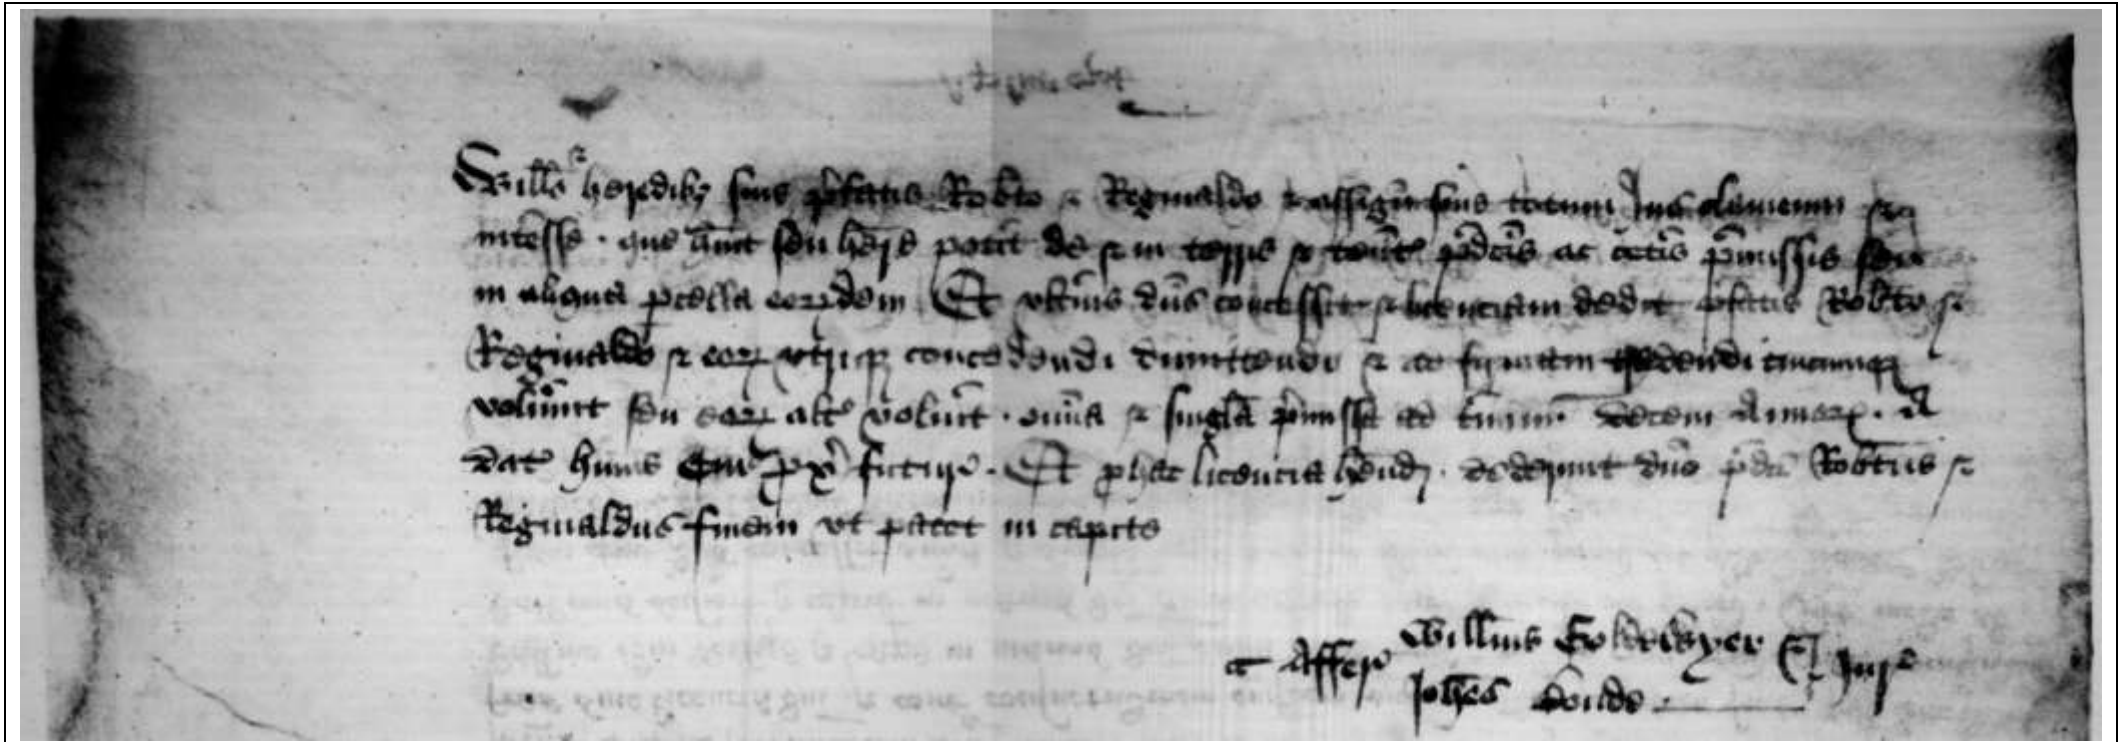 Willo & heredibz suis pfatis Robto & Reginaldo & assign suis totum Jus clameum &
intesse . que hunt seu here potit de & in terris & tent pdcis ac cetis pmissis seu
in aliqua pcella eordem Et vltius dns concessit & licenciam dedit pfatis Robto &
Reginaldo & eor vtriqz concedendi dimittendi & ad firmam tradendi cuicumqz
volunt seu eor alt volunt . omia & singla pmissa ad tminu decem Annor . a
dat huius Cur px futur . Et p hac licencia hend . dederunt dno pdci Robtus &
Reginaldus finem vt patet in capite
Affer Willms
Johes Bonde Jur